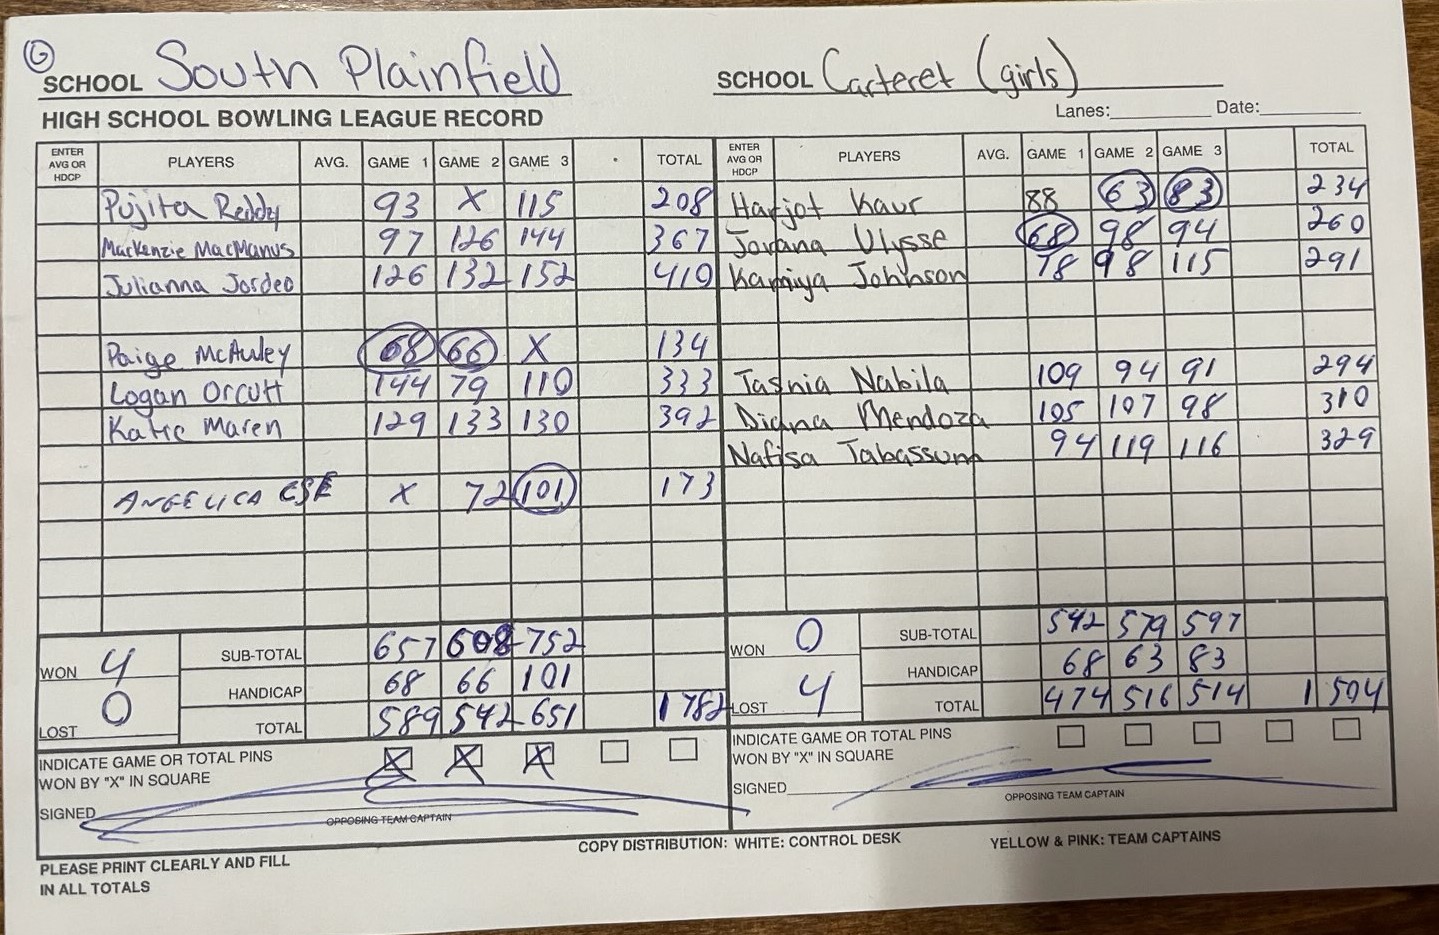 G
SCHOOL South Plainfield SCHOOL Carteret (girls)
HIGH SCHOOL BOWLING LEAGUE RECORD Lanes: Date:
ENTER AVG OR HDCP PLAYERS AVG. GAME 1 GAME 2 GAME 3 TOTAL ENTER AVG OR HDCP PLAYERS AVG. GAME 1 GAME 2 GAME 3 TOTAL
Pujita Reddy 93 X 115 208 Harjot Kaur 88 63 83 234
Mackenzie MacManus 97 126 144 367 Jovana Ulysse 68 98 94 260
Julianna Jordeo 126 132 152 410 Kamiya Johnson 78 98 115 291
Paige McAuley 68 66 X 134
Logan Orcutt 144 79 110 333 Tasnia Nabila 109 94 91 294
Katie Maren 129 133 130 392 Diana Mendoza 105 107 98 310
Nafisa Tabassum 94 119 116 329
ANGELICA X 72 101 173
WON 4 SUB-TOTAL 657 608 752 WON 0 SUB-TOTAL 542 579 597
HANDICAP 68 66 101 HANDICAP 68 63 83
LOST 0 TOTAL 589 542 651 1782 LOST 4 TOTAL 474 516 514 1504
INDICATE GAME OR TOTAL PINS X X X INDICATE GAME OR TOTAL PINS
WON BY "X" IN SQUARE WON BY "X" IN SQUARE
SIGNED SIGNED
OPPOSING TEAM CAPTAIN OPPOSING TEAM CAPTAIN
PLEASE PRINT CLEARLY AND FILL COPY DISTRIBUTION: WHITE: CONTROL DESK YELLOW & PINK: TEAM CAPTAINS
IN ALL TOTALS